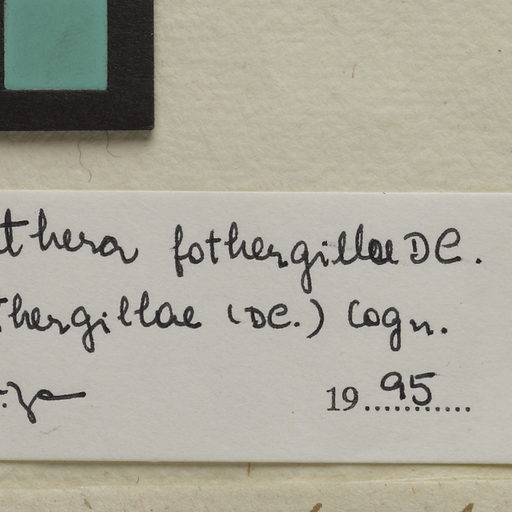 thera fothergillae DC.
thergillae (DC.) Cogn.
1995